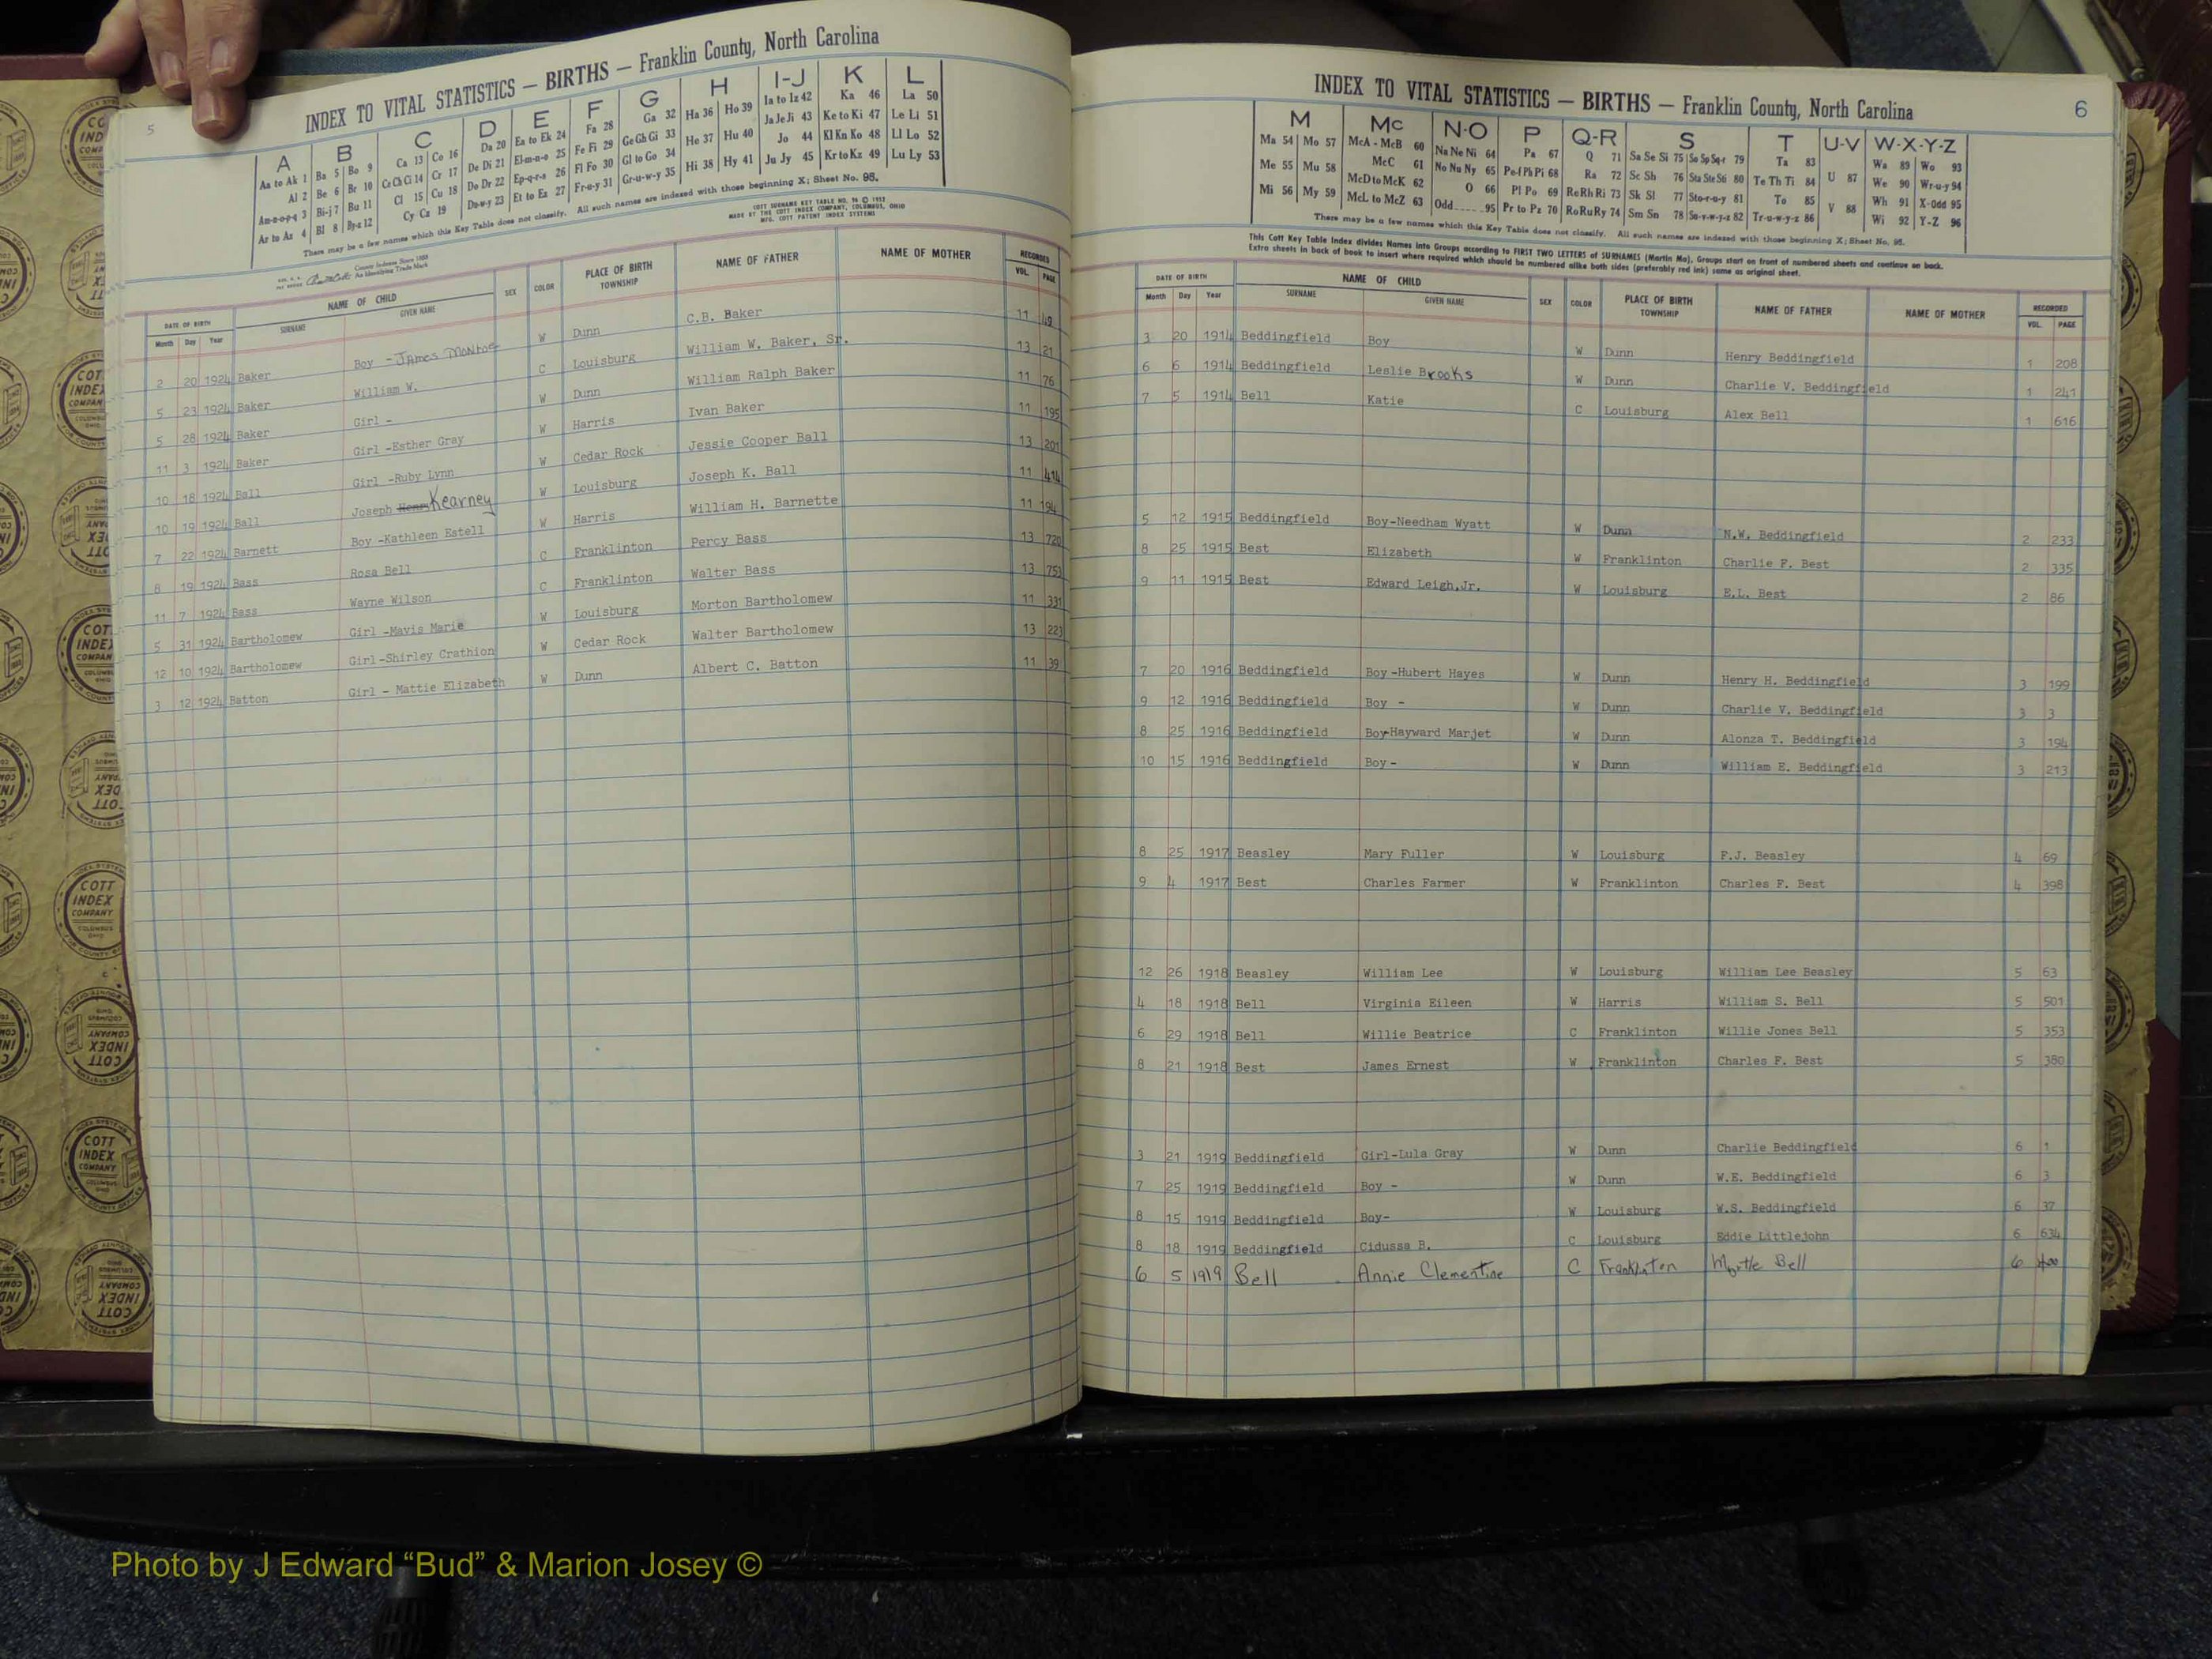 5
INDEX TO VITAL STATISTICS — BIRTHS — Franklin County, North Carolina
A B C D E F G H I-J K L
Aa to Ak 1 Ba 5 Bo 9 Ca 13 Co 16 Da 20 Ea to Ek 24 Fa 28 Ga 32 Ha 36 Ho 39 Ia to Iz 42 Ka 46 La 50
Al 2 Be 6 Br 10 Ce Ch Ci 14 Cr 17 De Di 21 El-m-n-o 25 Fe Fi 29 Ge Gh Gi 33 He 37 Hu 40 Ja Je Ji 43 Ke to Ki 47 Le Li 51
Am-n-o-p-q 3 Bi-j 7 Bu 11 Cl 15 Cu 18 Do Dr 22 Ep-q-r-s 26 Fl Fo 30 Gl to Go 34 Hi 38 Hy 41 Jo 44 Kl Kn Ko 48 Ll Lo 52
Ar to Az 4 Bl 8 By-z 12 Cy Cz 19 Du-w-y 23 Et to Ez 27 Fr-u-y 31 Gr-u-w-y 35 Ju Jy 45 Kr to Kz 49 Lu Ly 53
There may be a few names which this Key Table does not classify. All such names are indexed with those beginning X; Sheet No. 95.
COTT SURNAME KEY TABLE NO. 96 © 1952
MADE BY THE COTT INDEX COMPANY, COLUMBUS, OHIO
MFG. COTT PATENT INDEX SYSTEMS
County Indexes Since 1888
An Identifying Trade Mark
DATE OF BIRTH NAME OF CHILD SEX COLOR PLACE OF BIRTH TOWNSHIP NAME OF FATHER NAME OF MOTHER RECORDED
Month Day Year SURNAME GIVEN NAME VOL. PAGE
2 20 1924 Baker Boy - James Monroe W Dunn C.B. Baker 11 49
5 23 1924 Baker William W. C Louisburg William W. Baker, Sr. 13 21
5 28 1924 Baker Girl - W Dunn William Ralph Baker 11 76
11 3 1924 Baker Girl -Esther Gray W Harris Ivan Baker 11 195
10 18 1924 Ball Girl -Ruby Lynn W Cedar Rock Jessie Cooper Ball 13 201
10 19 1924 Ball Joseph Henry Kearney W Louisburg Joseph K. Ball 11 414
7 22 1924 Barnett Boy -Kathleen Estell W Harris William H. Barnette 11 194
8 19 1924 Bass Rosa Bell C Franklinton Percy Bass 13 720
11 7 1924 Bass Wayne Wilson C Franklinton Walter Bass 13 753
5 31 1924 Bartholomew Girl -Mavis Marie W Louisburg Morton Bartholomew 11 331
12 10 1924 Bartholomew Girl-Shirley Crathion W Cedar Rock Walter Bartholomew 13 223
3 12 1924 Batton Girl - Mattie Elizabeth W Dunn Albert C. Batton 11 39
INDEX TO VITAL STATISTICS — BIRTHS — Franklin County, North Carolina
6
M Mc N-O P Q-R S T U-V W-X-Y-Z
Ma 54 Mo 57 McA - McB 60 Na Ne Ni 64 Pa 67 Q 71 Sa Se Si 75 So Sp Sq-r 79 Ta 83 U 87 Wa 89 Wo 93
Me 55 Mu 58 McC 61 No Nu Ny 65 Pe-f Ph Pi 68 Ra 72 Sc Sh 76 Sta Ste Sti 80 Te Th Ti 84 V 88 We 90 Wr-u-y 94
Mi 56 My 59 McD to McK 62 O 66 Pl Po 69 Re Rh Ri 73 Sk Sl 77 Sto-r-u-y 81 To 85 Wh 91 X-Odd 95
McL to McZ 63 Odd 95 Pr to Pz 70 Ro Ru Ry 74 Sm Sn 78 Su-v-w-y-z 82 Tr-u-w-y-z 86 Wi 92 Y-Z 96
There may be a few names which this Key Table does not classify. All such names are indexed with those beginning X; Sheet No. 95.
This Cott Key Table Index divides Names into Groups according to FIRST TWO LETTERS of SURNAMES (Martin Ma). Groups start on front of numbered sheets and continue on back.
Extra sheets in back of book to insert where required which should be numbered alike both sides (preferably red ink) same as original sheet.
DATE OF BIRTH NAME OF CHILD SEX COLOR PLACE OF BIRTH TOWNSHIP NAME OF FATHER NAME OF MOTHER RECORDED
Month Day Year SURNAME GIVEN NAME VOL. PAGE
3 20 1914 Beddingfield Boy W Dunn Henry Beddingfield 1 208
6 6 1914 Beddingfield Leslie Brooks W Dunn Charlie V. Beddingfield 1 241
7 5 1914 Bell Katie C Louisburg Alex Bell 1 616
5 12 1915 Beddingfield Boy-Needham Wyatt W Dunn N.W. Beddingfield 2 233
8 25 1915 Best Elizabeth W Franklinton Charlie F. Best 2 335
9 11 1915 Best Edward Leigh,Jr. W Louisburg E.L. Best 2 86
7 20 1916 Beddingfield Boy-Hubert Hayes W Dunn Henry H. Beddingfield 3 199
9 12 1916 Beddingfield Boy - W Dunn Charlie V. Beddingfield 3 3
8 25 1916 Beddingfield Boy-Hayward Marjet W Dunn Alonza T. Beddingfield 3 194
10 15 1916 Beddingfield Boy- W Dunn William E. Beddingfield 3 213
8 25 1917 Beasley Mary Fuller W Louisburg F.J. Beasley 4 69
9 4 1917 Best Charles Farmer W Franklinton Charles F. Best 4 398
12 26 1918 Beasley William Lee W Louisburg William Lee Beasley 5 63
4 18 1918 Bell Virginia Eileen W Harris William S. Bell 5 501
6 29 1918 Bell Willie Beatrice C Franklinton Willie Jones Bell 5 353
8 21 1918 Best James Ernest W Franklinton Charles F. Best 5 380
3 21 1919 Beddingfield Girl-Lula Gray W Dunn Charlie Beddingfield 6 1
7 25 1919 Beddingfield Boy - W Dunn W.E. Beddingfield 6 3
8 15 1919 Beddingfield Boy- W Louisburg W.S. Beddingfield 6 37
8 18 1919 Beddingfield Cidussa B. C Louisburg Eddie Littlejohn 6 634
6 5 1919 Bell Annie Clementine C Franklinton Myrtle Bell 6 400
Photo by J Edward “Bud” & Marion Josey ©